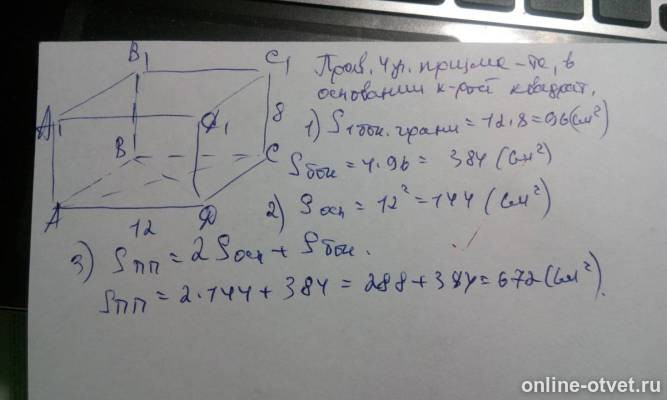 B₁
C₁
Прав. 4уг. призма – та, в
основании к-рой квадрат.
A₁
D₁
8
1) S₁бок. грани = 12·8 = 96 (см²)
B
C
Sбок = 4·96 = 384 (см²)
A
D
12
2) Sосн = 12² = 144 (см²)
3) Sпп = 2Sосн + Sбок.
Sпп = 2·144 + 384 = 288 + 384 = 672 (см²).
online-otvet.ru